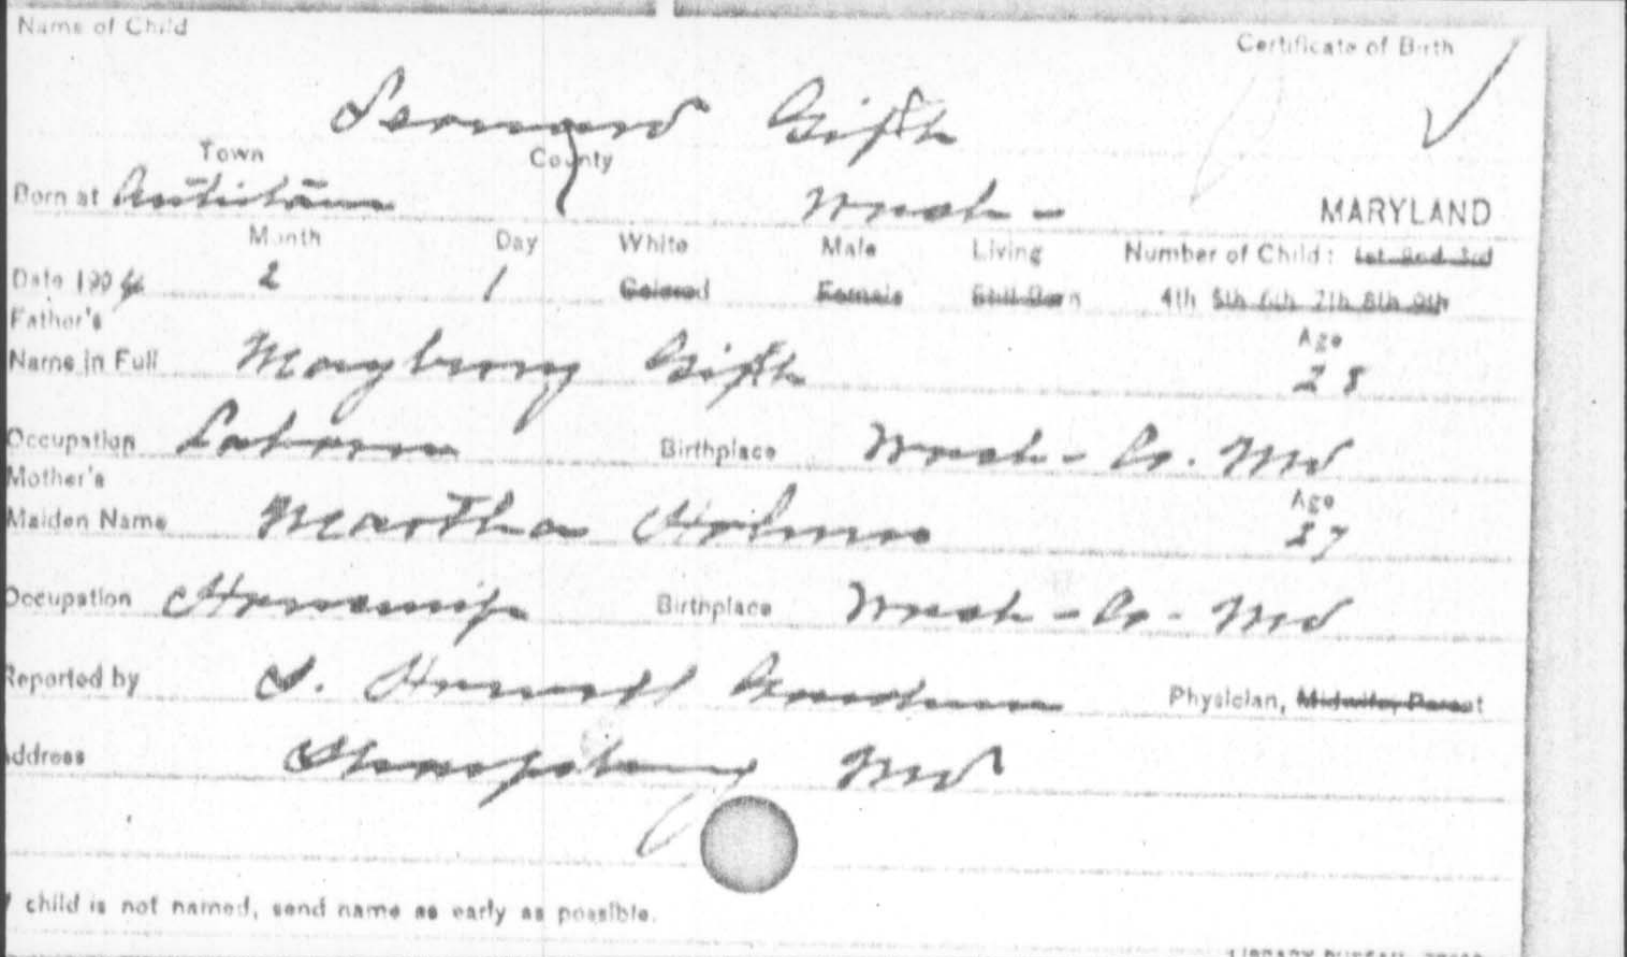 Name of Child
Certificate of Birth
Gift
Town County
Born at Antietam Wash - MARYLAND
Month Day White Male Living Number of Child: 1st 2nd 3rd
Date 190 4 2 1 Colored Female Still Born 4th 5th 6th 7th 8th 9th
Father's Age
Name in Full Gift 28
Occupation Laborer Birthplace Wash - Co. Md
Mother's Age
Maiden Name Martha Holmes 27
Occupation Housewife Birthplace Wash - Co - Md
Reported by S. Howell Physician, Midwife, Parent
Address Sharpsburg Md
child is not named, send name as early as possible.
LIBRARY BUREAU